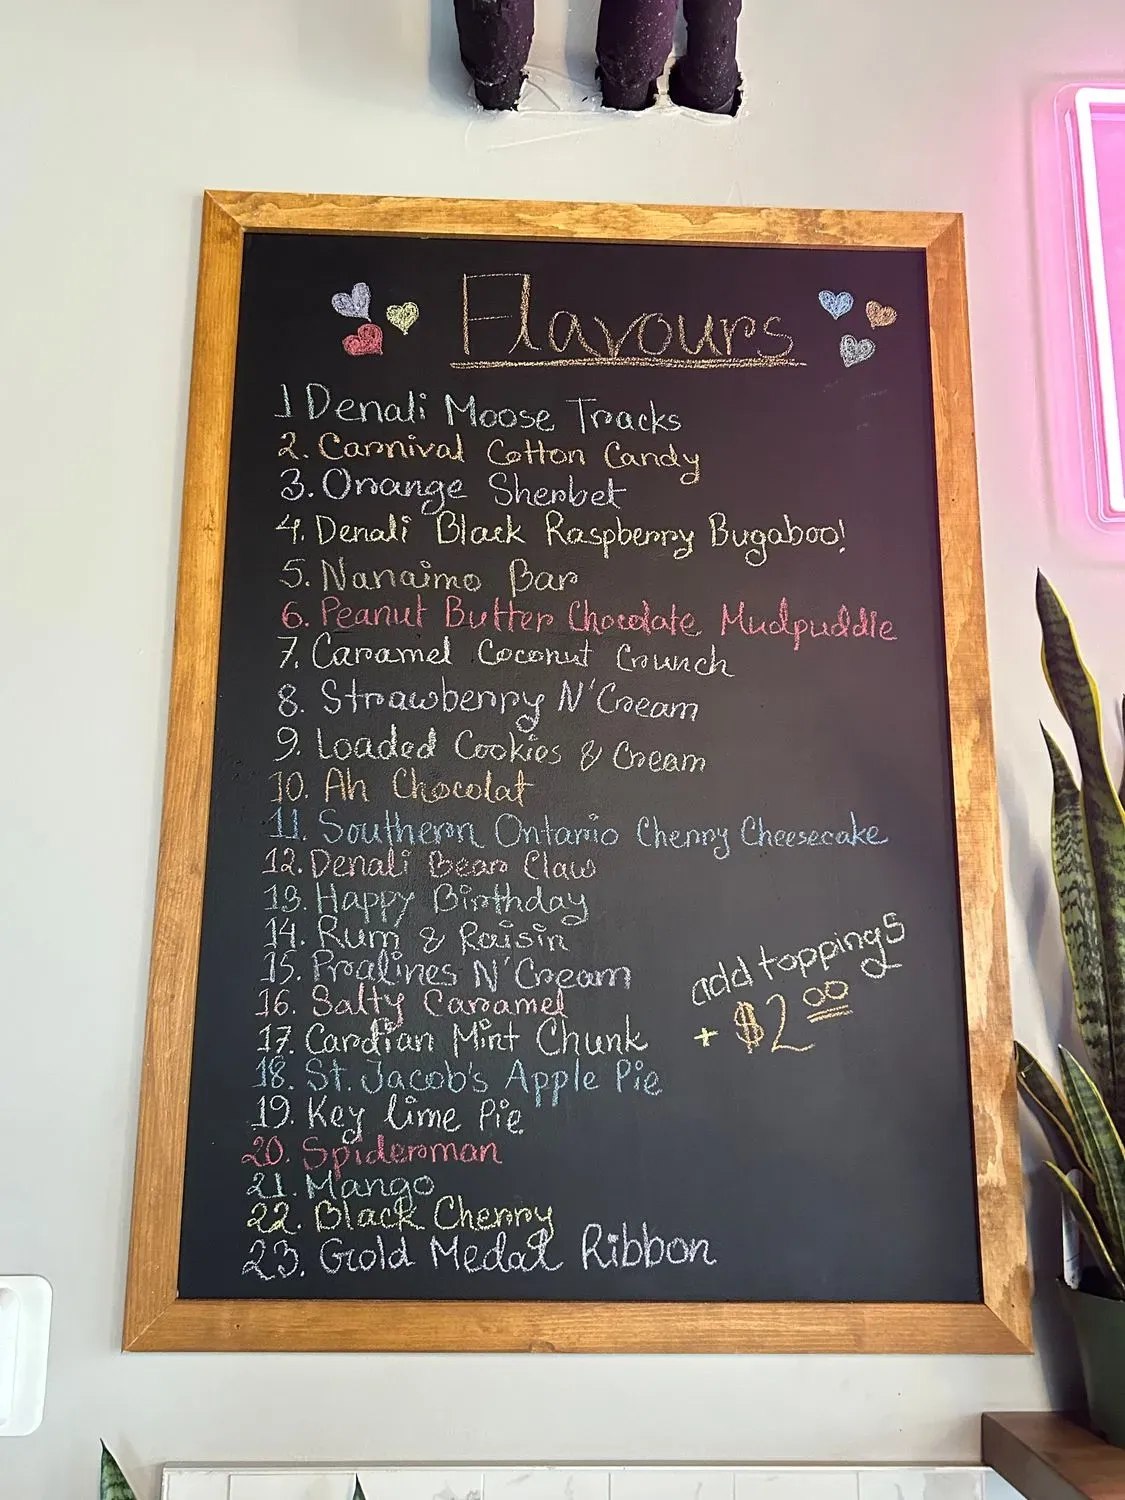 Flavours
1 Denali Moose Tracks
2. Carnival Cotton Candy
3. Orange Sherbet
4. Denali Black Raspberry Bugaboo!
5. Nanaimo Bar
6. Peanut Butter Chocolate Mudpuddle
7. Caramel Coconut Crunch
8. Strawberry N'Cream
9. Loaded Cookies & Cream
10. Ah Chocolat
11. Southern Ontario Cherry Cheesecake
12. Denali Bear Claw
13. Happy Birthday
14. Rum & Raisin
15. Pralines N'Cream
16. Salty Caramel
17. Cardian Mint Chunk
18. St. Jacob's Apple Pie
19. Key lime Pie
20. Spiderman
21. Mango
22. Black Cherry
23. Gold Medal Ribbon
add toppings
+ $2.00